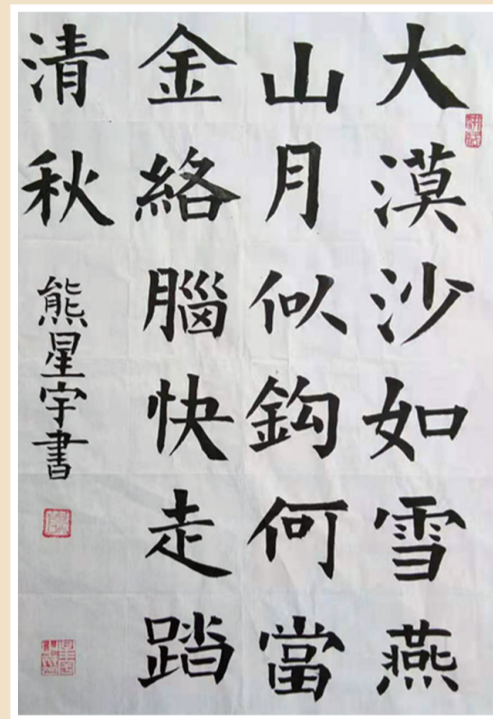 大漠沙如雪燕
山月似鈎何當
金絡腦快走踏
清秋
熊星宇書